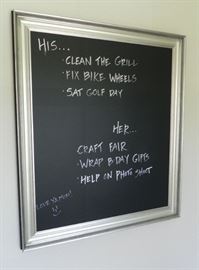 HIS...
·CLEAN THE GRILL
·FIX BIKE WHEELS
·SAT GOLF DAY
HER...
CRAFT FAIR
·WRAP B·DAY GIFTS
·HELP ON PHOTO SHOOT
LOVE YA MOM!